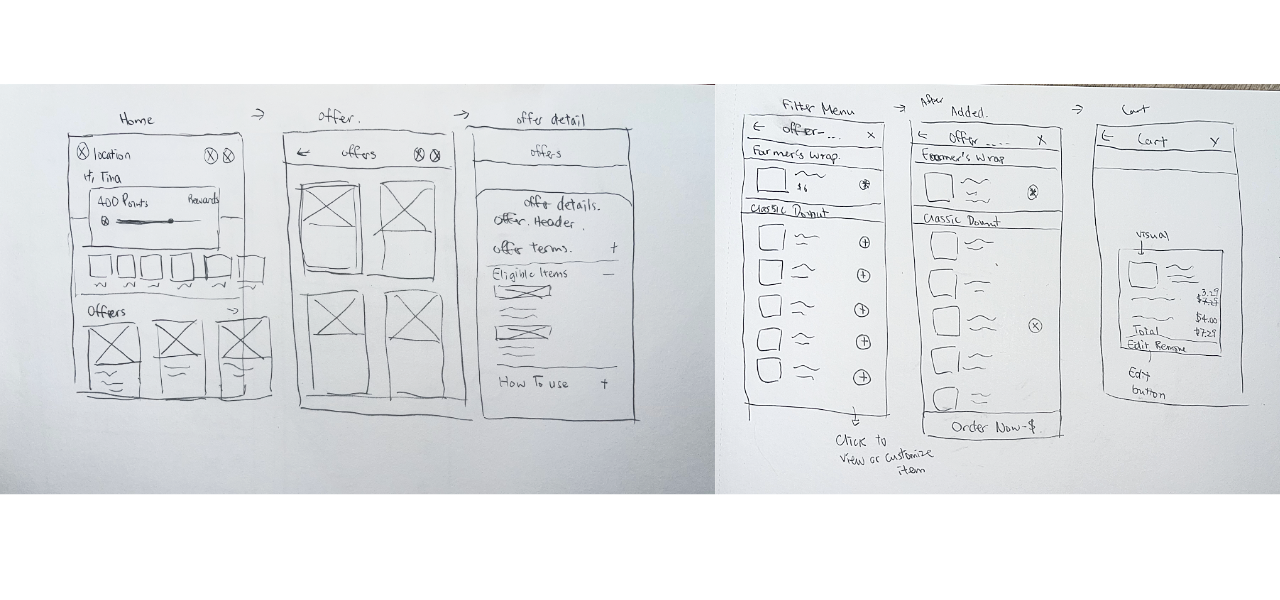 Home
→
location
Hi, Tina
400 Points
Rewards
Offers
→
offer.
→
←
offers
offer detail
offers
offer details.
offer. Header.
offer terms. +
Eligible Items —
How To use +
Filter Menu
→
← offer-... X
Farmer's wrap.
$6
Classic Donut
+
+
+
+
+
Click to
View or Customize
item
After
Added.
→
← Offer ..... X
Farmer's Wrap
Classic Donut
Order Now-$
Cart
← Cart
visual
3.29
$4.00
Total $7.29
Edit Remove
Edit
button